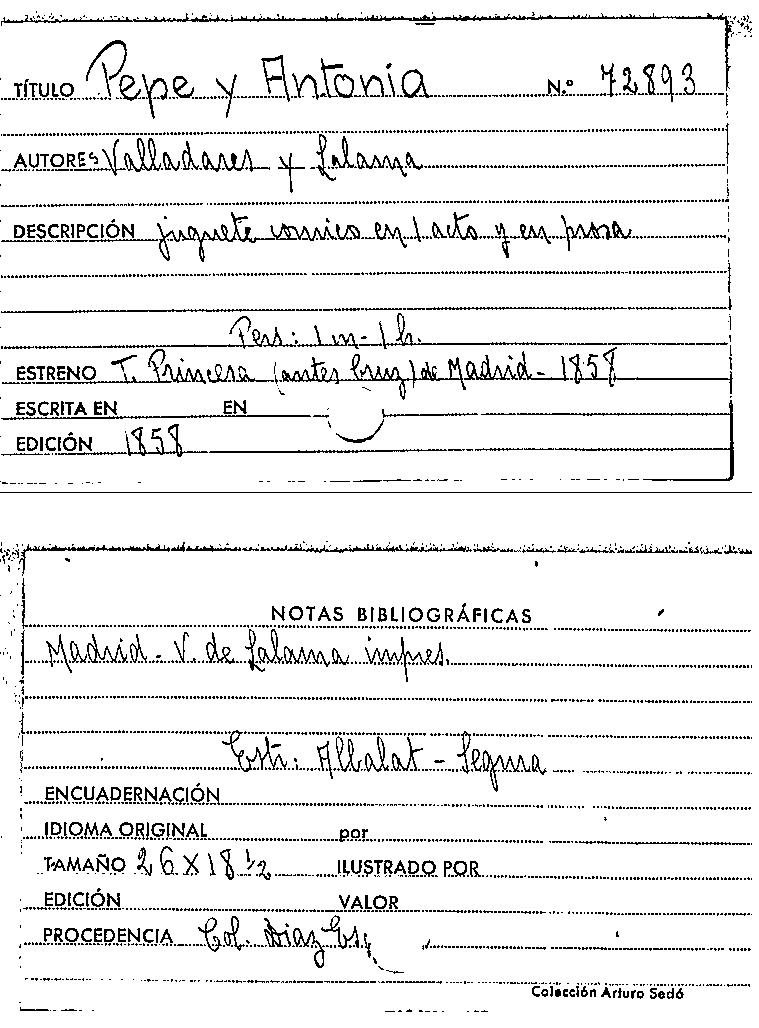 TÍTULO Pepe y Antonia N.º 72893
AUTORES Valladares y Lalama
DESCRIPCIÓN juguete comico en 1 acto y en prosa
Pers: 1 m - 1 h.
ESTRENO T. Princesa (antes Cruz) de Madrid - 1858
ESCRITA EN EN
EDICIÓN 1858
NOTAS BIBLIOGRÁFICAS
Madrid - V. de Lalama impres.
Estr: Albalat - Segura
ENCUADERNACIÓN
IDIOMA ORIGINAL por
TAMAÑO 26 X 18 ½ ILUSTRADO POR
EDICIÓN VALOR
PROCEDENCIA Col. Diaz Esc
Colección Arturo Sedó